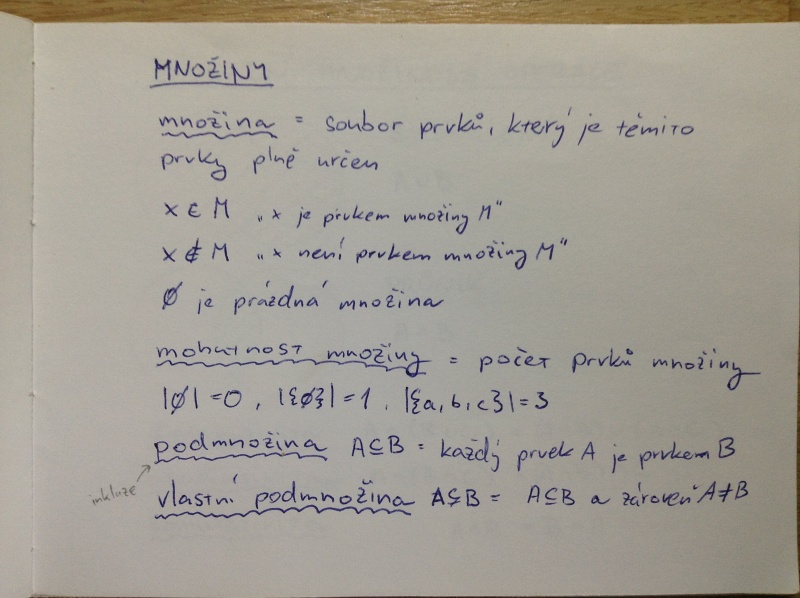 MNOŽINY
množina = soubor prvků, který je těmito
prvky plně určen
x ∈ M „x je prvkem množiny M"
x ∉ M „x není prvkem množiny M"
∅ je prázdná množina
mohutnost množiny = počet prvků množiny
|∅| = 0, |{∅}| = 1, |{a, b, c}| = 3
podmnožina A ⊆ B = každý prvek A je prvkem B
inkluze
vlastní podmnožina A ⊊ B = A ⊆ B a zároveň A ≠ B